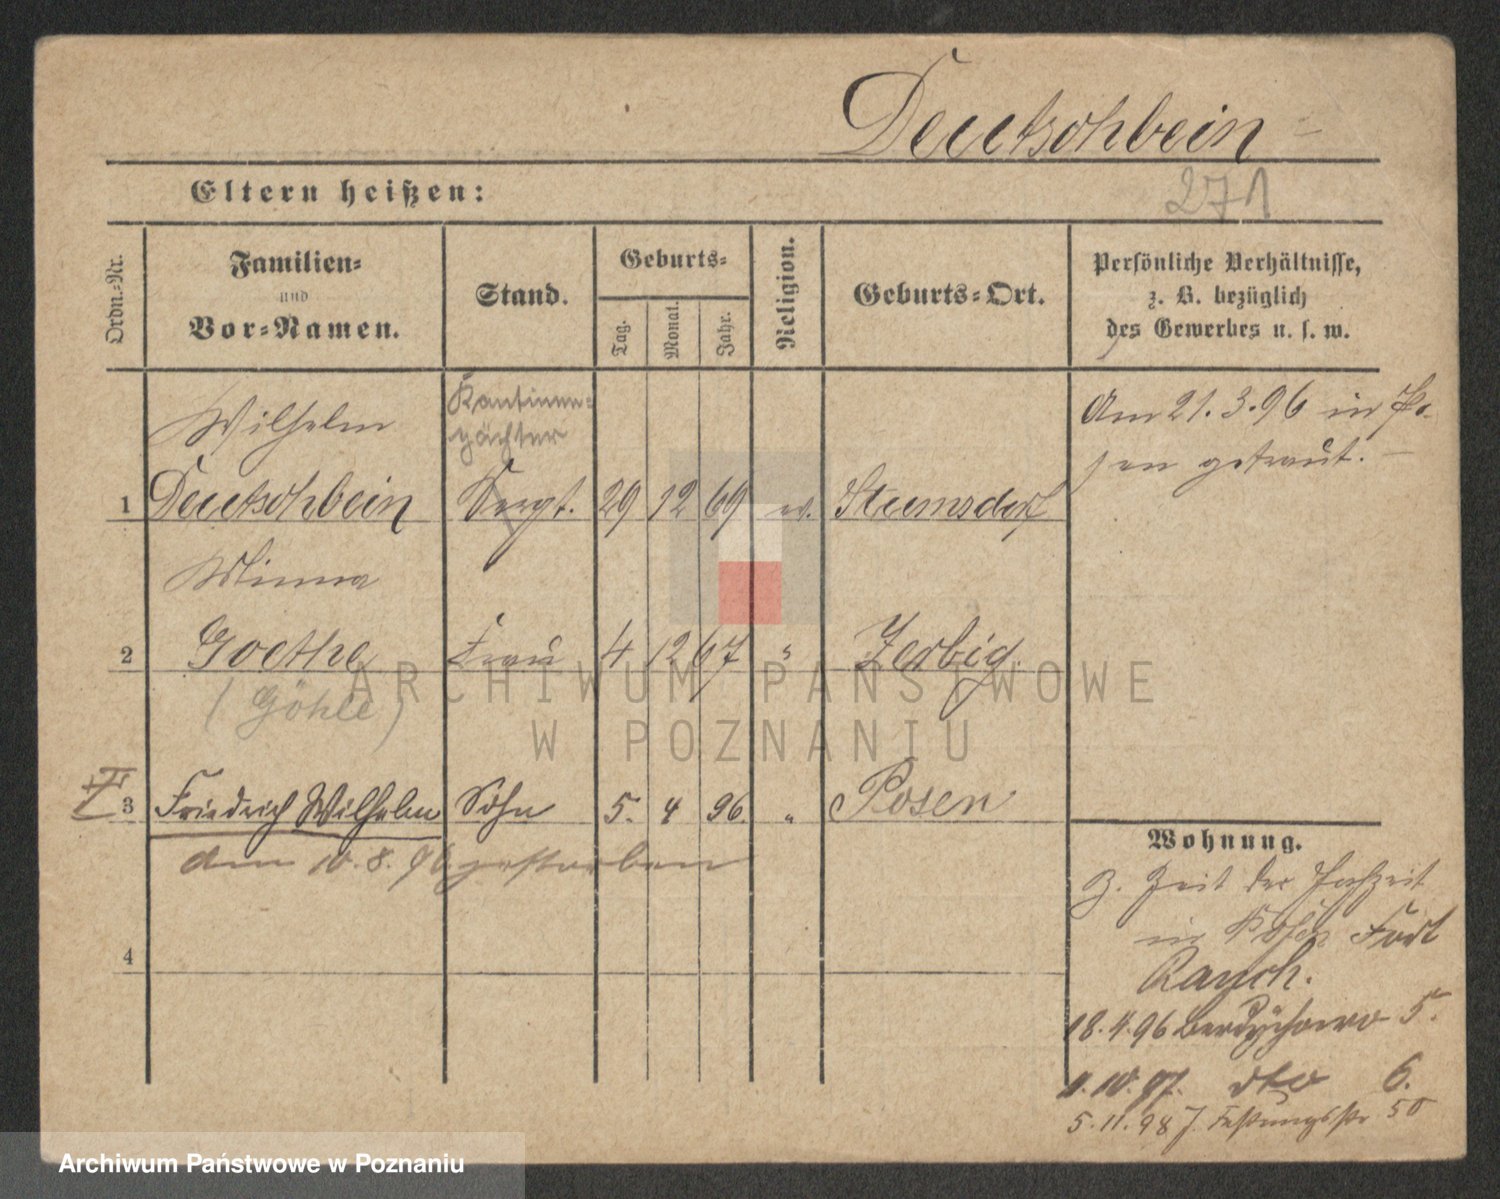 Deutschbein
Eltern heißen:
271
Ordn.-Nr.
Familien-
und
Vor-Namen.
Stand.
Geburts-
Tag.
Monat.
Jahr.
Religion.
Geburts-Ort.
Persönliche Verhältnisse,
z. B. bezüglich
des Gewerbes u. s. w.
Wilhelm
Kantinen-
pächter
1 Deutschbein Sergt. 29 12 69 ev. Stumsdorf
Am 21.3.96 in Po-
sen getraut.
Minna
2 Goethe Frau 4 12 67 " Zerbig
(Göhle)
3 Friedrich Wilhelm Sohn 5. 4 96. " Posen
am 10.8.96 gestorben
4
Wohnung.
z. Zeit der Hochzeit
in Posen Fort
Rauch.
18.4.96 Berdychowo 5.
1.10.97. dto 6.
5.11.98 Festungsstr 50
ARCHIWUM PAŃSTWOWE
W POZNANIU
Archiwum Państwowe w Poznaniu